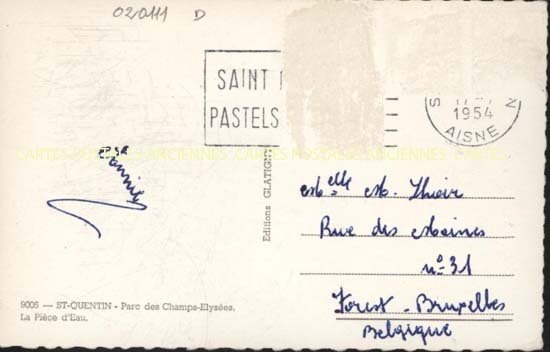 020111 D
SAINT
PASTELS
1954
AISNE
CARTES POSTALES ANCIENNES CARTES POSTALES ANCIENNES CARTES
Editions GLATIGNY
Melle M. Thoir
Rue des Moines
n° 31
Forest - Bruxelles
Belgique
9005 — ST-QUENTIN - Parc des Champs-Elysées.
La Pièce d'Eau.